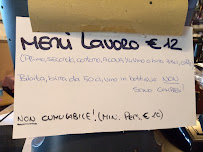 MENÙ LAVORO € 12
(PRIMO, SECONDO, CONTORNO, ACQUA, ¼ VINO o birra
Bibita, birra da 50cl, vino in bottiglia NON
SONO COMPRESI!
NON CUMULABILE! (MIN. PERS. € 10)